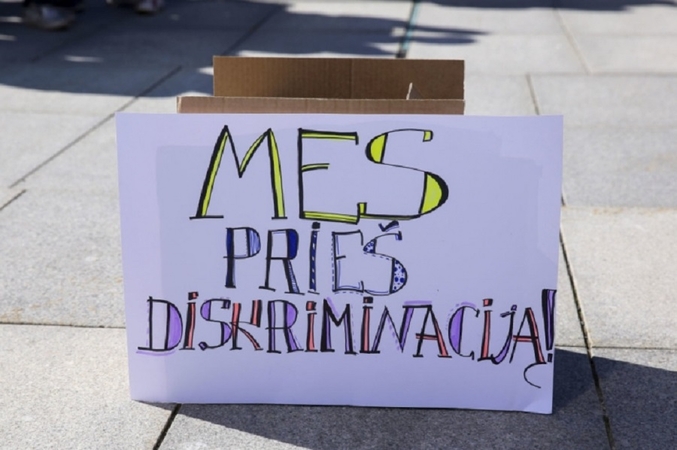 MES
PRIEŠ
DISKRIMINACIJA!